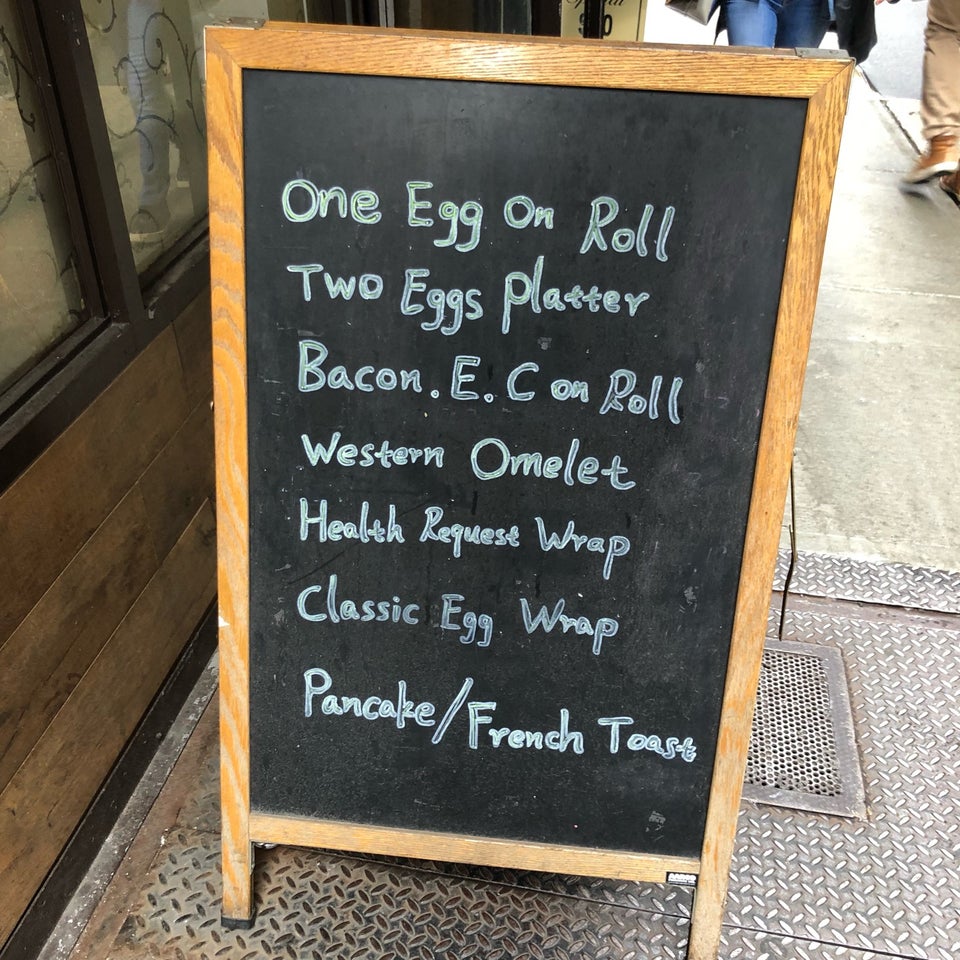 One Egg On Roll
Two Eggs Platter
Bacon. E. C on Roll
Western Omelet
Health Request Wrap
Classic Egg Wrap
Pancake/French Toast